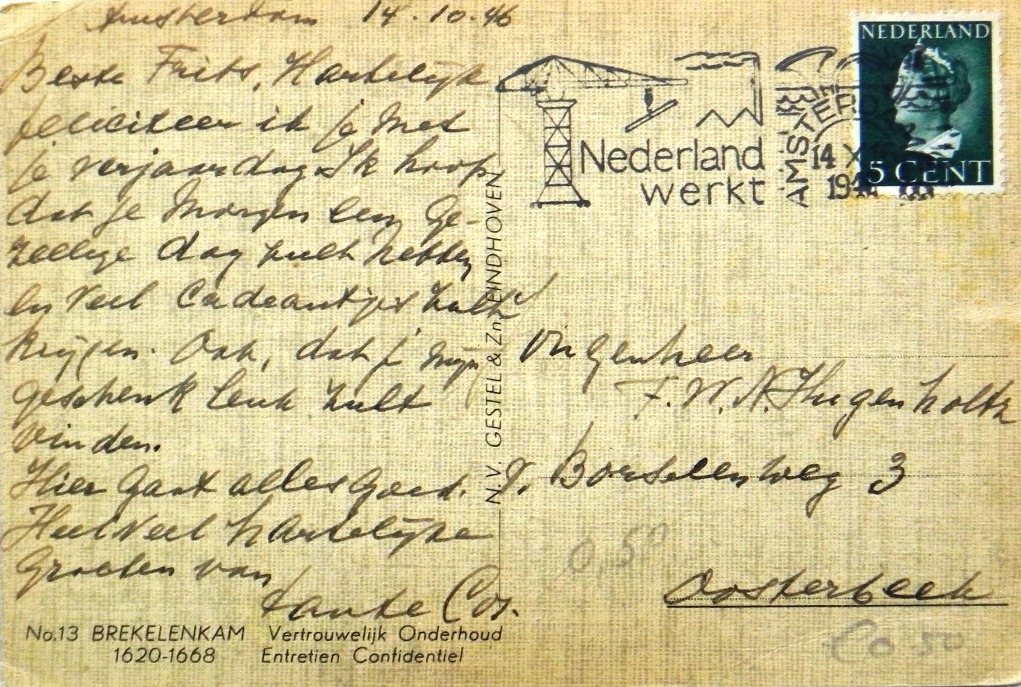 Amsterdam 14.10.46
Beste Frits, Hartelijk
feliciteer ik je met
je verjaardag. Ik hoop
dat je morgen een ge-
zellige dag zult hebben
en veel cadeautjes zult
krijgen. Ook, dat je mijn
geschenk leuk zult
vinden.
Hier gaat alles goed.
Heel veel hartelijke
groeten van
tante Cor.
No.13 BREKELENKAM Vertrouwelijk Onderhoud
1620-1668 Entretien Confidentiel
N.V. GESTEL & Zn. EINDHOVEN
Nederland
werkt
AMSTERD
14 X
194
NEDERLAND
5 CENT
F. W. A. Hugenholtz
v. Borselenweg 3
Oosterbeek
0,50
€0 50